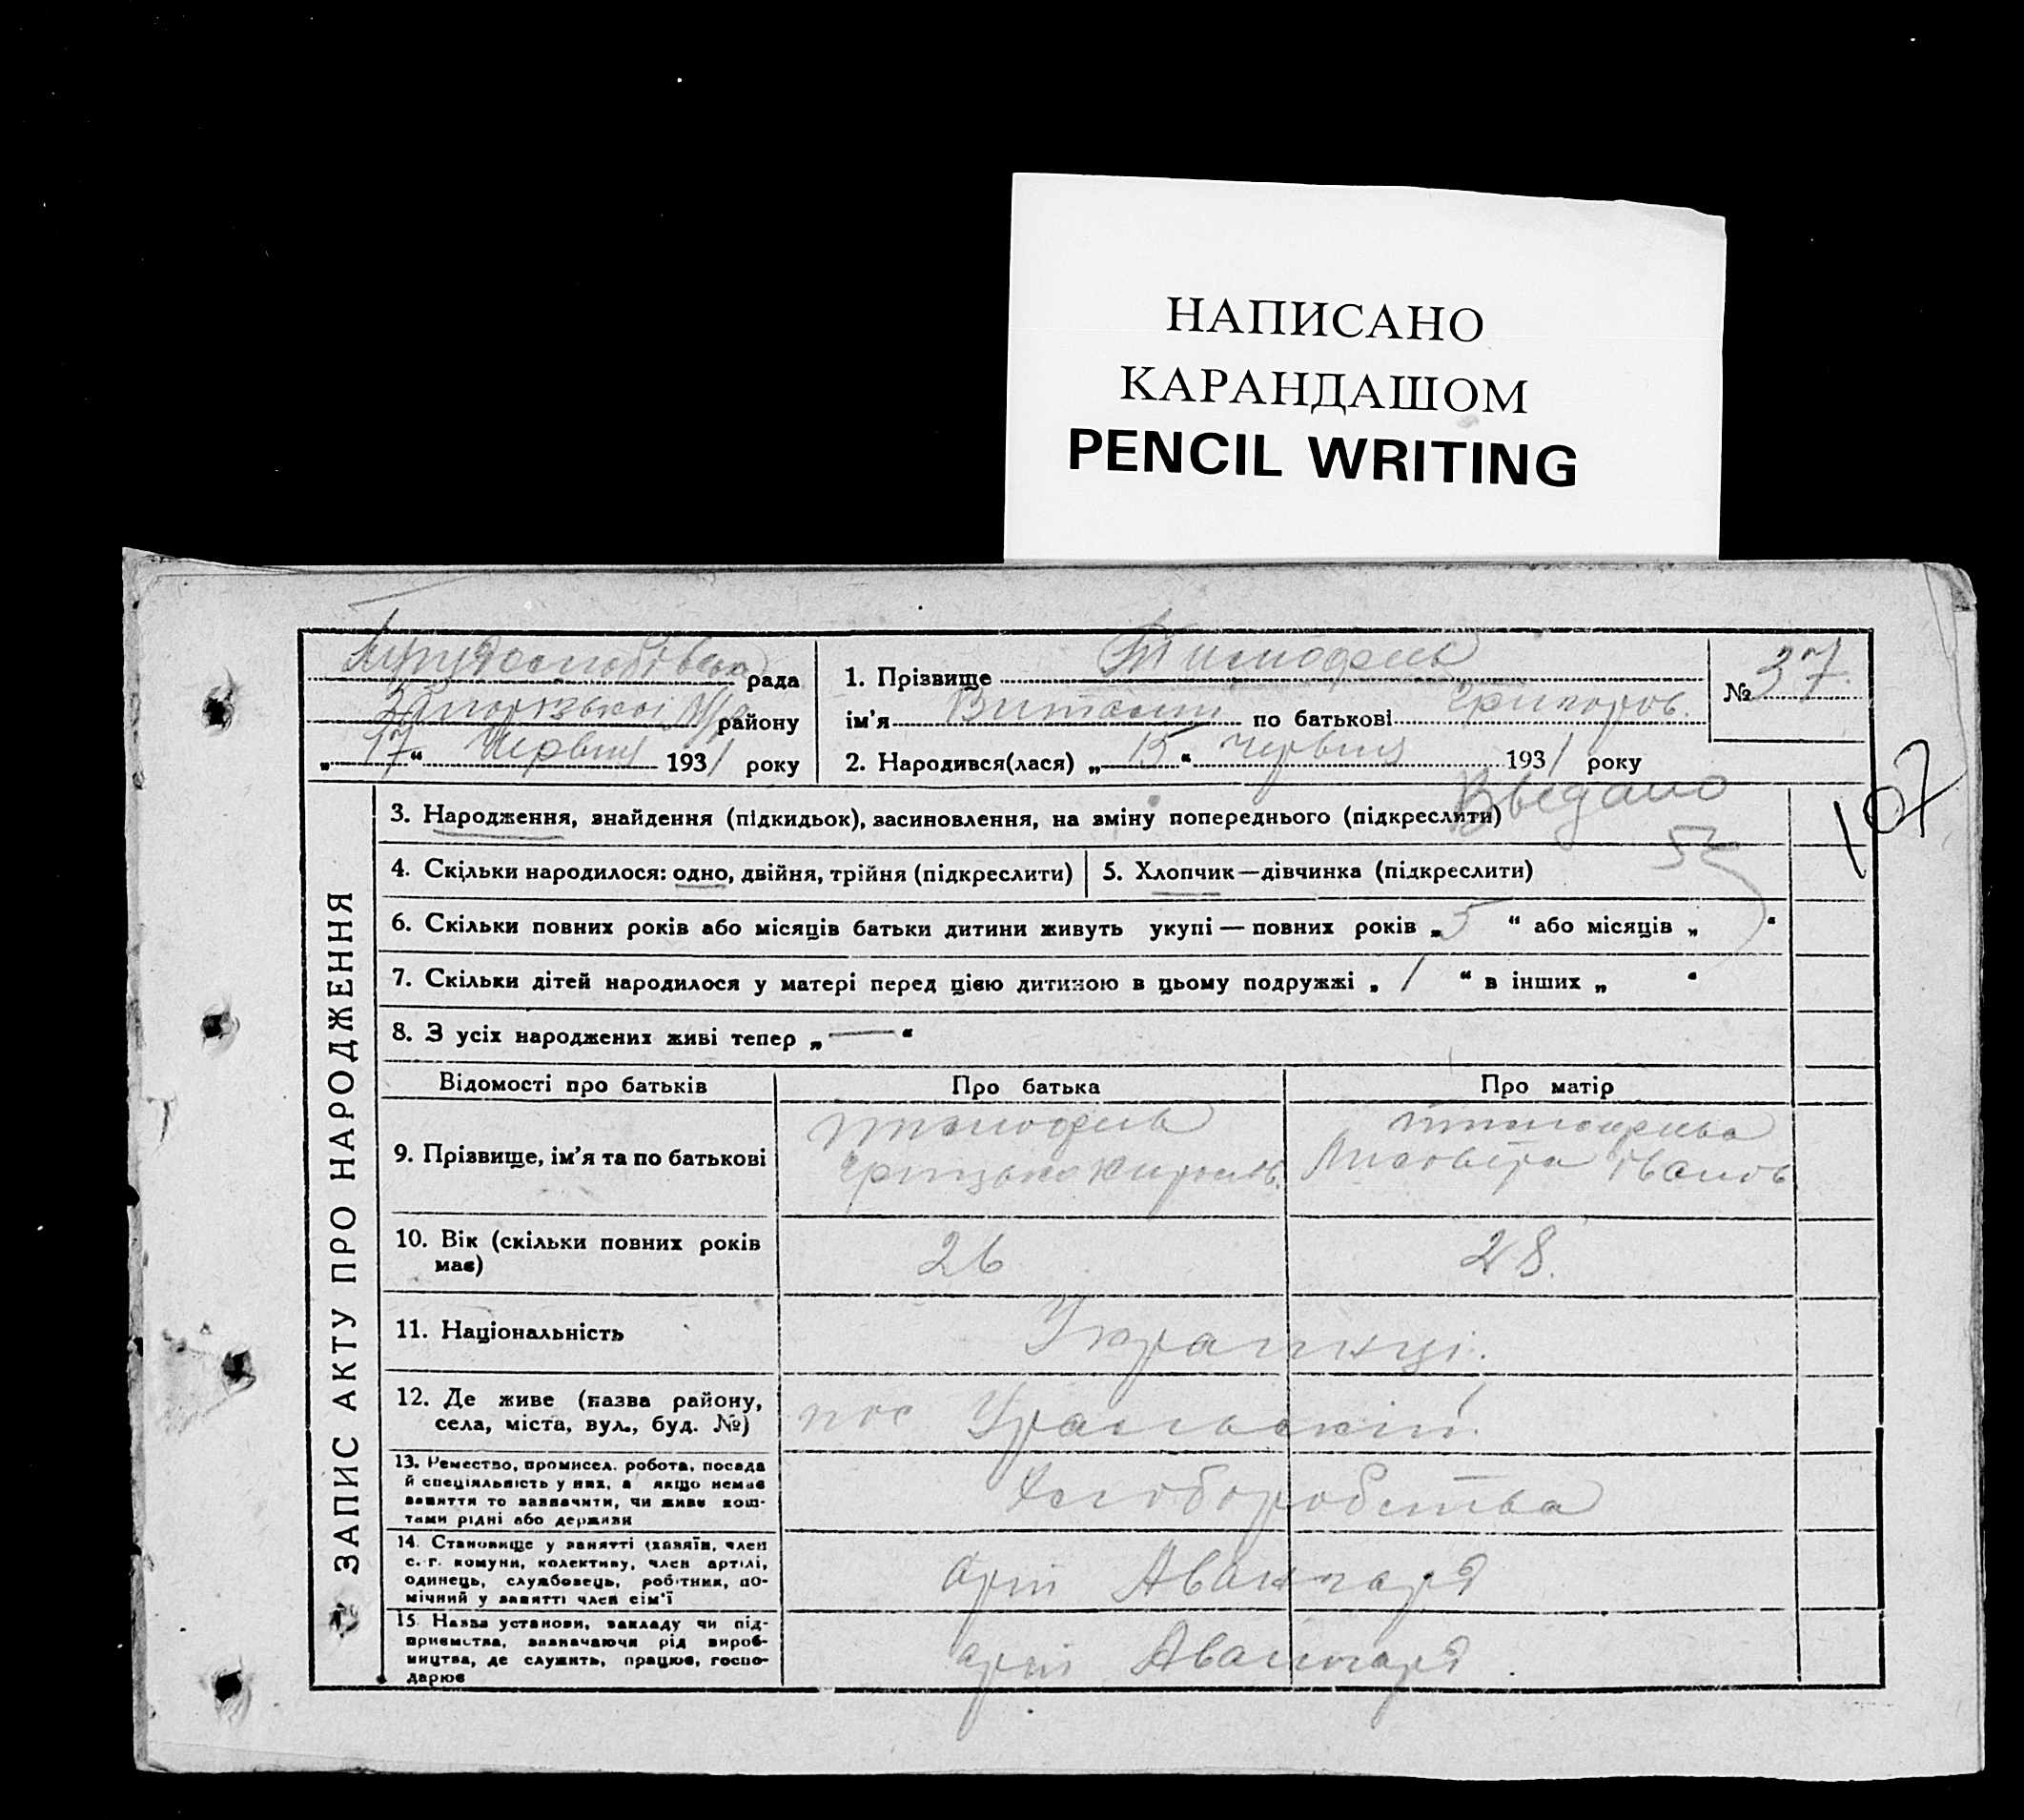 НАПИСАНО
КАРАНДАШОМ
PENCIL WRITING
рада
району
„17“ Червня 1931 року
1. Прізвище Тимофеев
ім'я Виталий по батькові Григоров.
№ 37.
2. Народився(лася) „15“ червня 1931 року
107
Введано
3. Народження, знайдення (підкидьок), засиновлення, на зміну попереднього (підкреслити)
4. Скільки народилося: одно, двійня, трійня (підкреслити)
5. Хлопчик—дівчинка (підкреслити)
6. Скільки повних років або місяців батьки дитини живуть укупі — повних років „5“ або місяців „ “
7. Скільки дітей народилося у матері перед цією дитиною в цьому подружжі „1“ в інших „ “
8. З усіх народжених живі тепер „—“
ЗАПИС АКТУ ПРО НАРОДЖЕННЯ
Відомості про батьків
Про батька
Про матір
9. Прізвище, ім'я та по батькові
Іванов
10. Вік (скільки повних років
має)
26
28.
11. Національність
Украинці.
12. Де живе (назва району,
села, міста, вул., буд. №)
пос Уральский.
13. Ремество, промисел. робота, посада
й спеціяльність у них, а якщо немає
заняття то зазначити, чи живе кош-
тами рідні або держави
Хлоборобства
14. Становище у занятті (хазяїн, член
с.-г. комуни, колективу, член артілі,
одинець, службовець, робітник, по-
мічний у занятті член сім'ї
арт Авангард
15. Назва установи, закладу чи під-
приємства, зазначаючи рід вироб-
ництва, де служить, працює, госпо-
дарює
арт Авангард